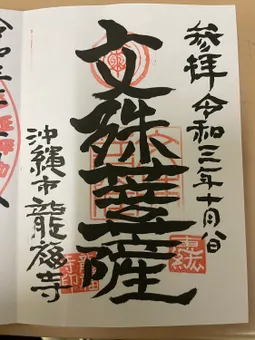 参拝 令和三年十月八日
文殊菩薩
沖縄市龍福寺